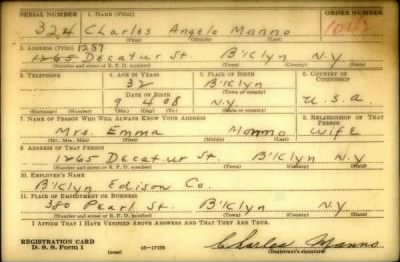 SERIAL NUMBER 1. NAME (Print) ORDER NUMBER
324 Charles Angelo Manno
(First) (Middle) (Last)
2. ADDRESS (Print) 1259
1265 Decatur St. B'klyn N.Y.
(Number and street or R. F. D. number) (Town) (County) (State)
3. TELEPHONE 4. AGE IN YEARS 5. PLACE OF BIRTH 6. COUNTRY OF CITIZENSHIP
32 B'klyn
DATE OF BIRTH (Town or county)
9 4 08 N.Y. U.S.A.
(Exchange) (Number) (Mo.) (Day) (Yr.) (State or country)
7. NAME OF PERSON WHO WILL ALWAYS KNOW YOUR ADDRESS 8. RELATIONSHIP OF THAT PERSON
Mrs. Emma Manno Wife
(Mr., Mrs., Miss) (First) (Middle) (Last)
9. ADDRESS OF THAT PERSON
1265 Decatur St. B'klyn N.Y.
(Number and street or R. F. D. number) (Town) (County) (State)
10. EMPLOYER'S NAME
B'klyn Edison Co.
11. PLACE OF EMPLOYMENT OR BUSINESS
380 Pearl St. B'klyn N.Y.
(Number and street or R. F. D. number) (Town) (County) (State)
I AFFIRM THAT I HAVE VERIFIED ABOVE ANSWERS AND THAT THEY ARE TRUE.
REGISTRATION CARD
D. S. S. Form 1 (over) 16—17105 Charles Manno
(Registrant's signature)